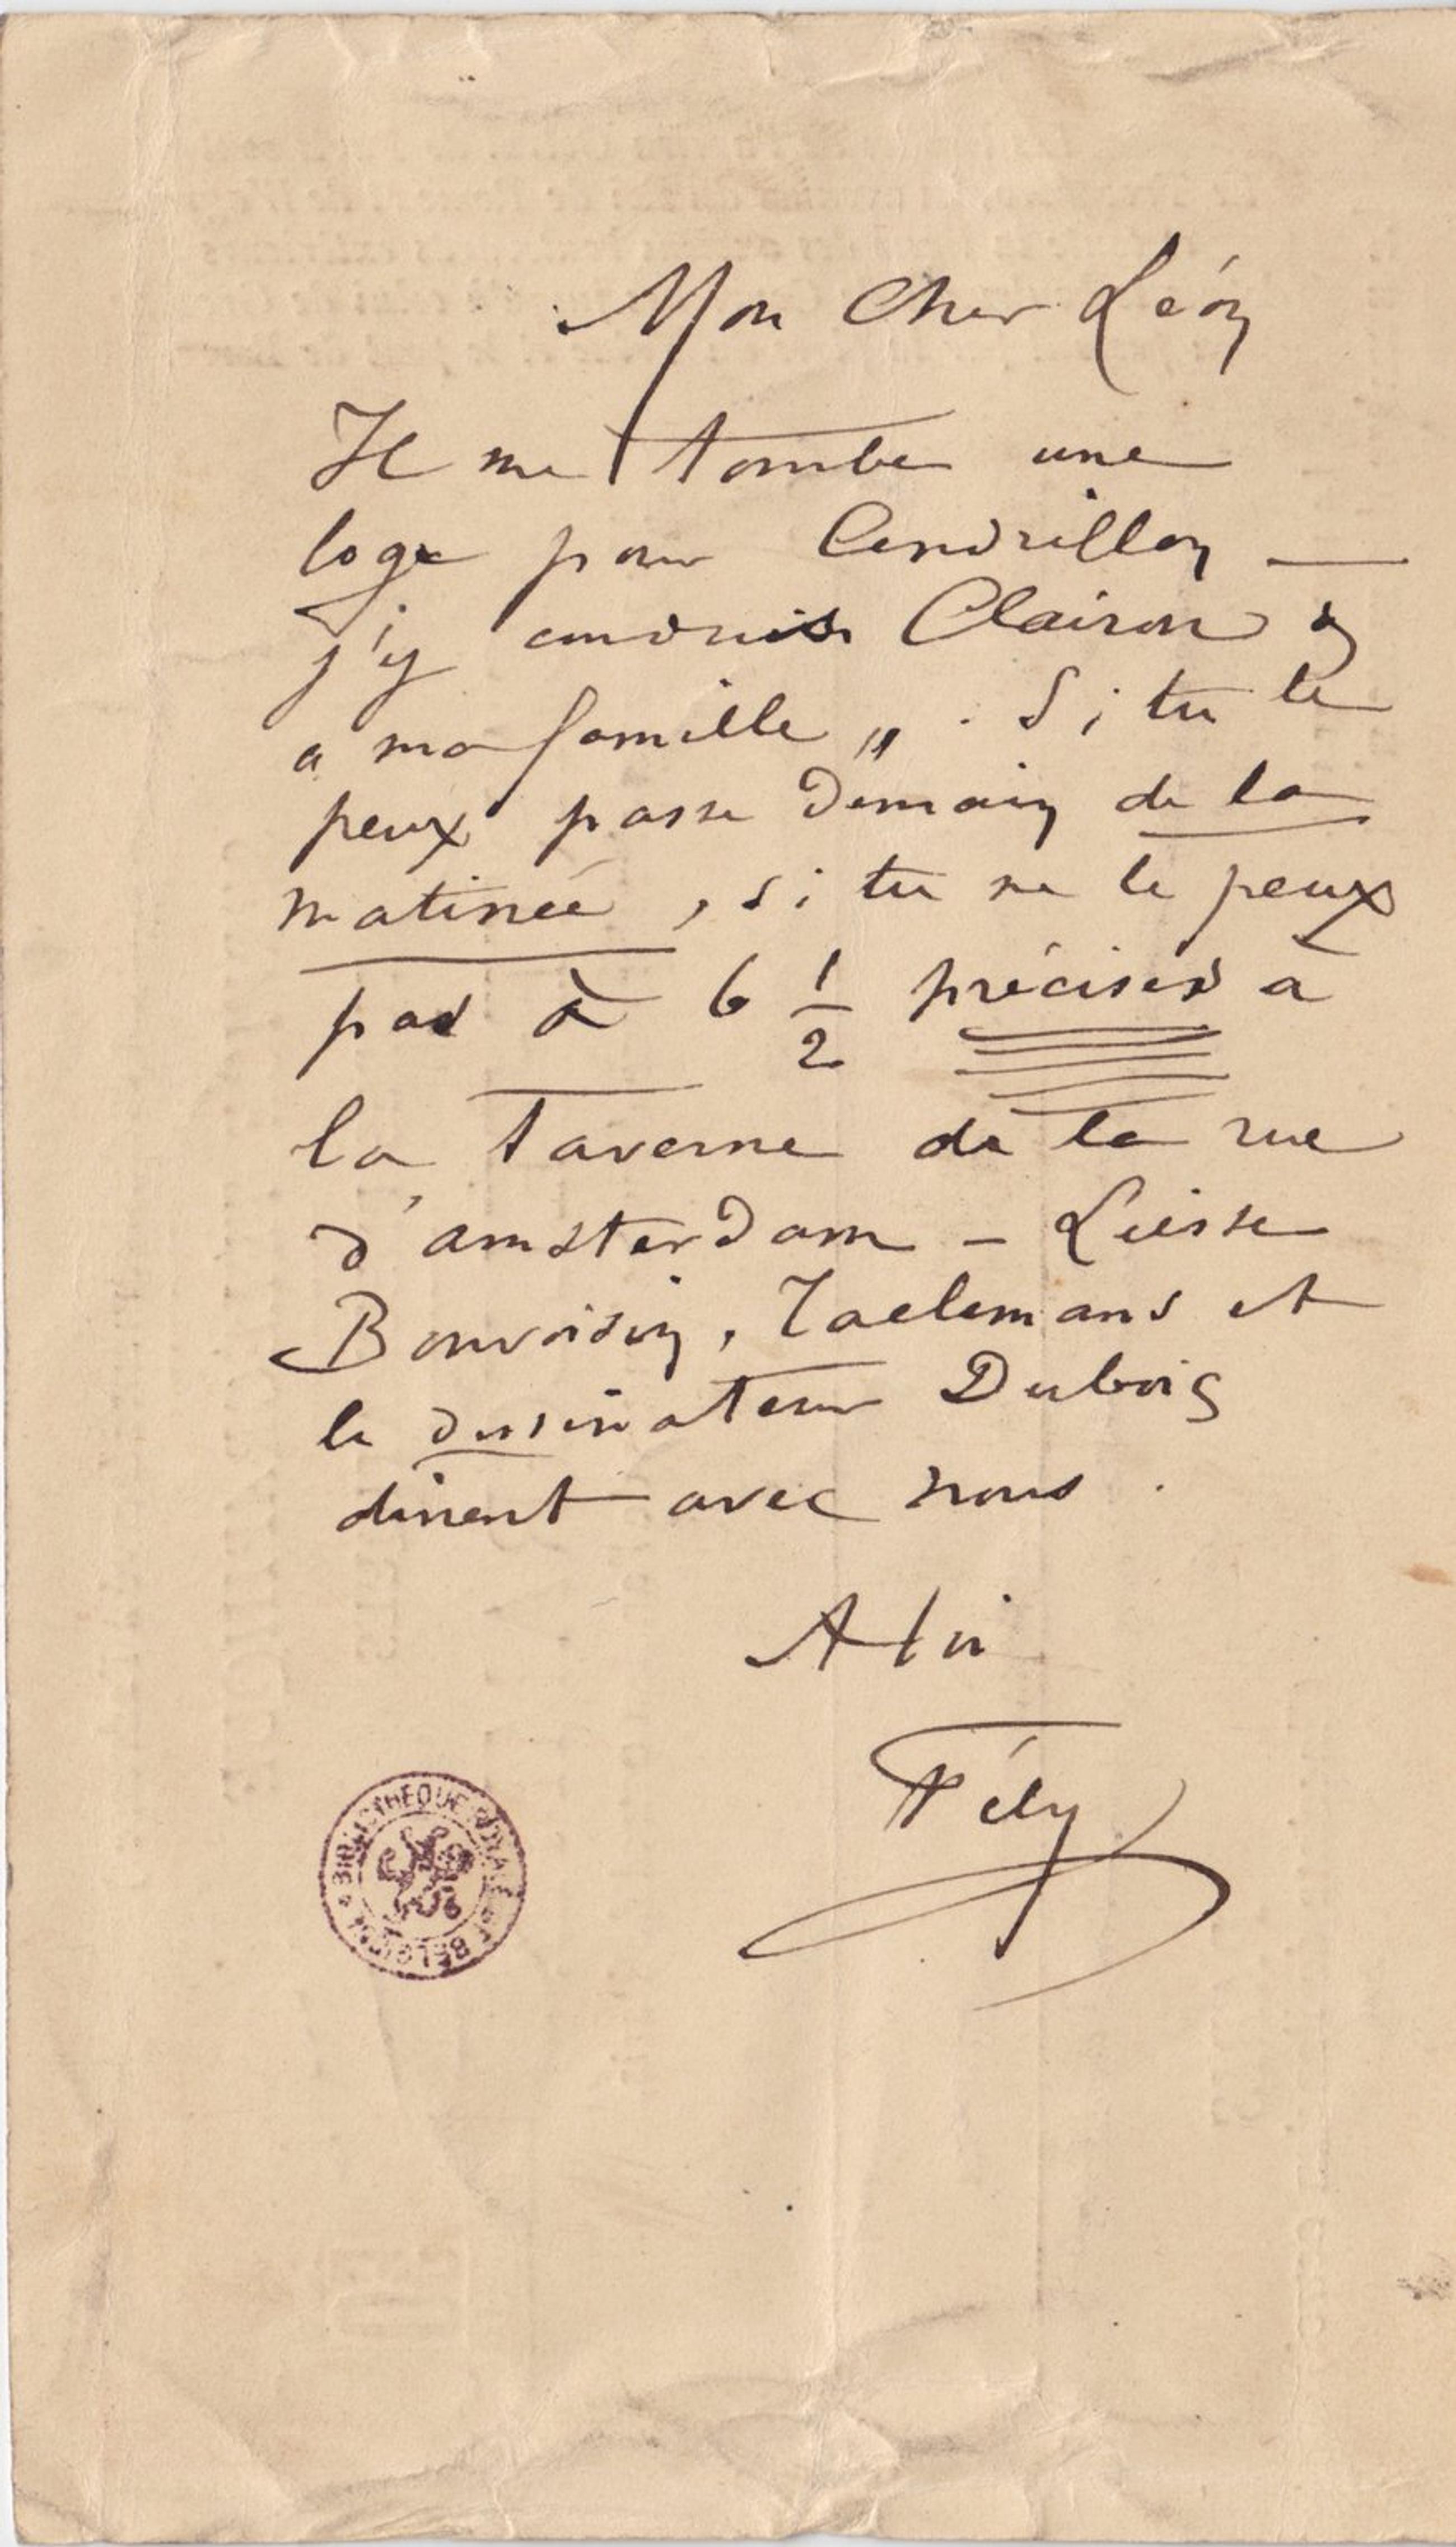 Mon Cher Léon
Il me tombe une
loge pour Cendrillon —
j'y conduis Clairon &
a ma famille „ . Si tu le
peux passe Demain de la
matinée , si tu ne le peux
pas à 6 1/2 précises à
la Taverne de la rue
d'amsterdam – Liesse
Bonvoisin, Taelemans et
le dessinateur Dubois
dinent avec nous .
A toi
Fély
BIBLIOTHÈQUE ROYALE DE BELGIQUE